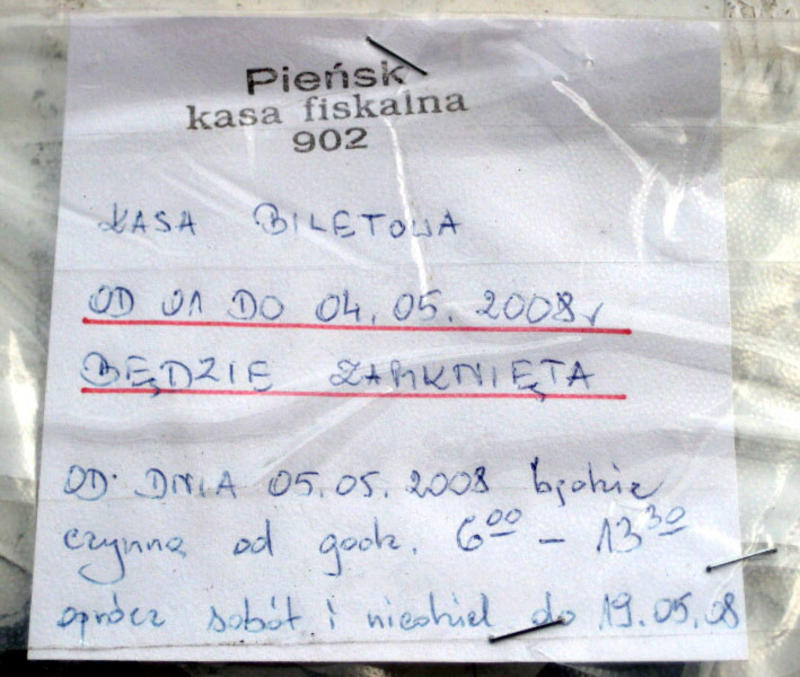 Pieńsk
kasa fiskalna
902
KASA BILETOWA
OD 01 DO 04.05.2008r
BĘDZIE ZAMKNIĘTA
OD DNIA 05.05.2008 będzie
czynna od godz. 6⁰⁰ – 13³⁰
oprócz sobót i niedziel do 19.05.08